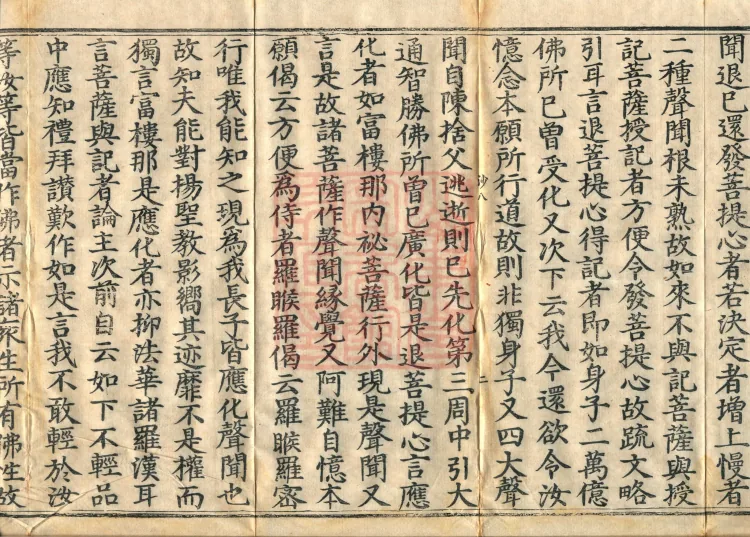 聞退已還發菩提心者若決定者增上慢者
二種聲聞根未熟故如來不與記菩薩與授
記菩薩授記者方便令發菩提心故疏文略
引耳言退菩提心得記者即如身子二萬億
佛所已曾受化又次下云我今還欲令汝
憶念本願所行道故則非獨身子又四大聲
鈔八 二
聞自陳捨父逃逝則已先化第三周中引大
通智勝佛所曾已廣化皆是退菩提心言應
化者如富樓那內祕菩薩行外現是聲聞又
言是故諸菩薩作聲聞緣覺又阿難自憶本
願偈云方便為侍者羅睺羅偈云羅睺羅密
行唯我能知之現為我長子皆應化聲聞也
故知夫能對揚聖教影嚮其迹靡不是權而
獨言富樓那是應化者亦抑法華諸羅漢耳
言菩薩與記者論主次前自云如下不輕品
中應知禮拜讚歎作如是言我不敢輕於汝
等汝等皆當作佛者示諸眾生所有佛性故